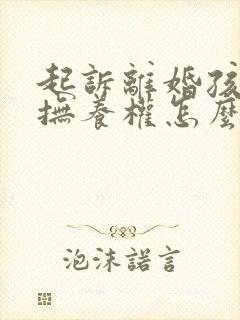 起訴離婚孩
撫養權怎麼
泡沫諾言